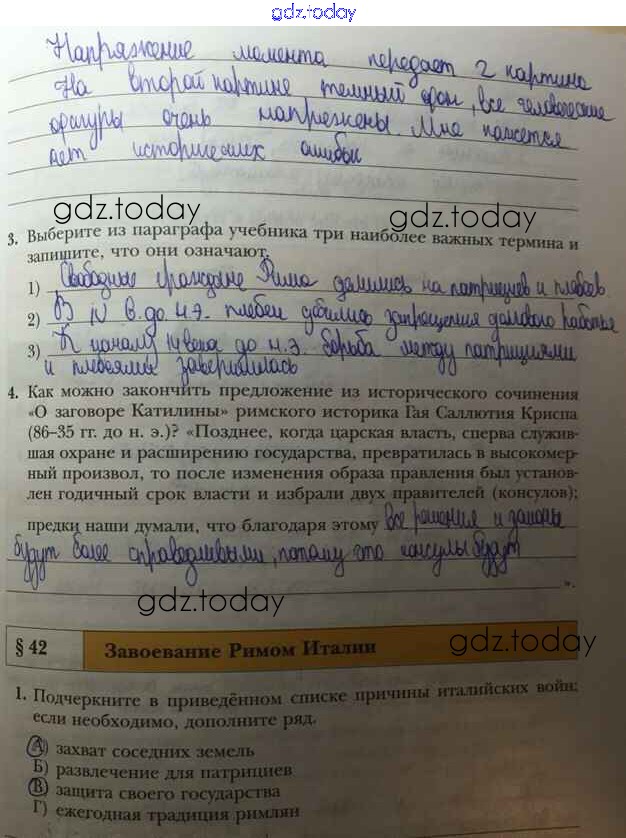 gdz.today
Напряжение момента передает 2 картина
На второй картине темный фон, все человеческие
фигуры очень напряжены. Мне кажется
нет исторических ошибок
gdz.today
gdz.today
3. Выберите из параграфа учебника три наиболее важных термина и
запишите, что они означают.
1) Свободные граждане Рима делились на патрициев и плебеев.
2) В IV в. до н.э. плебеи добились запрещения долгового рабства
3) К началу века до н.э. борьба между патрициями
и плебеями завершилась
4. Как можно закончить предложение из исторического сочинения
«О заговоре Катилины» римского историка Гая Саллютия Криспа
(86–35 гг. до н. э.)? «Позднее, когда царская власть, сперва служив-
шая охране и расширению государства, превратилась в высокомер-
ный произвол, то после изменения образа правления был установ-
лен годичный срок власти и избрали двух правителей (консулов);
предки наши думали, что благодаря этому все решения и законы
будут более справедливыми, потому что консулы будут
».
gdz.today
§ 42 Завоевание Римом Италии
gdz.today
1. Подчеркните в приведённом списке причины италийских войн;
если необходимо, дополните ряд.
А) захват соседних земель
Б) развлечение для патрициев
В) защита своего государства
Г) ежегодная традиция римлян